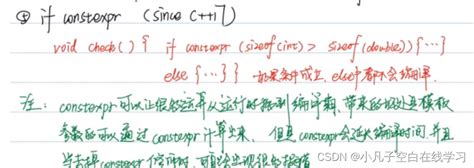 ⑤ if constexpr (since C++17)
void check() { if constexpr (sizeof(int) > sizeof(double)) {…}
else {…} } 如果条件成立, else中都不会编译.
注: constexpr可以让很多运算从运行时推到编译期, 带来的好处是模板
参数的可以通过 constexpr 计算出来, 但是 constexpr会延长编译时间, 并且
constexpr
CSDN @小凡子空白在线学习